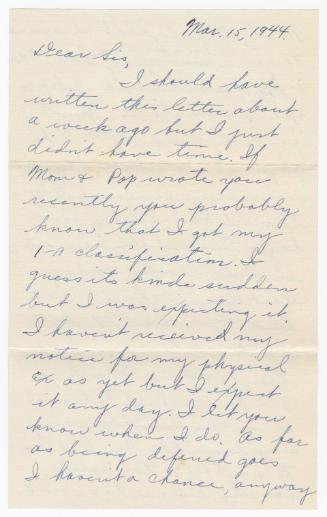 Mar. 15, 1944.
Dear Sis,
I should have
written this letter about
a week ago but I just
didn't have time. If
Mom & Pop wrote you
recently you probably
know that I got my
1-A classification. I
guess its kinda sudden
but I was expecting it.
I haven't received my
notice for my physical
ex as yet but I expect
it any day. I let you
know when I do. As far
as being deferred goes
I haven't a chance, anyway